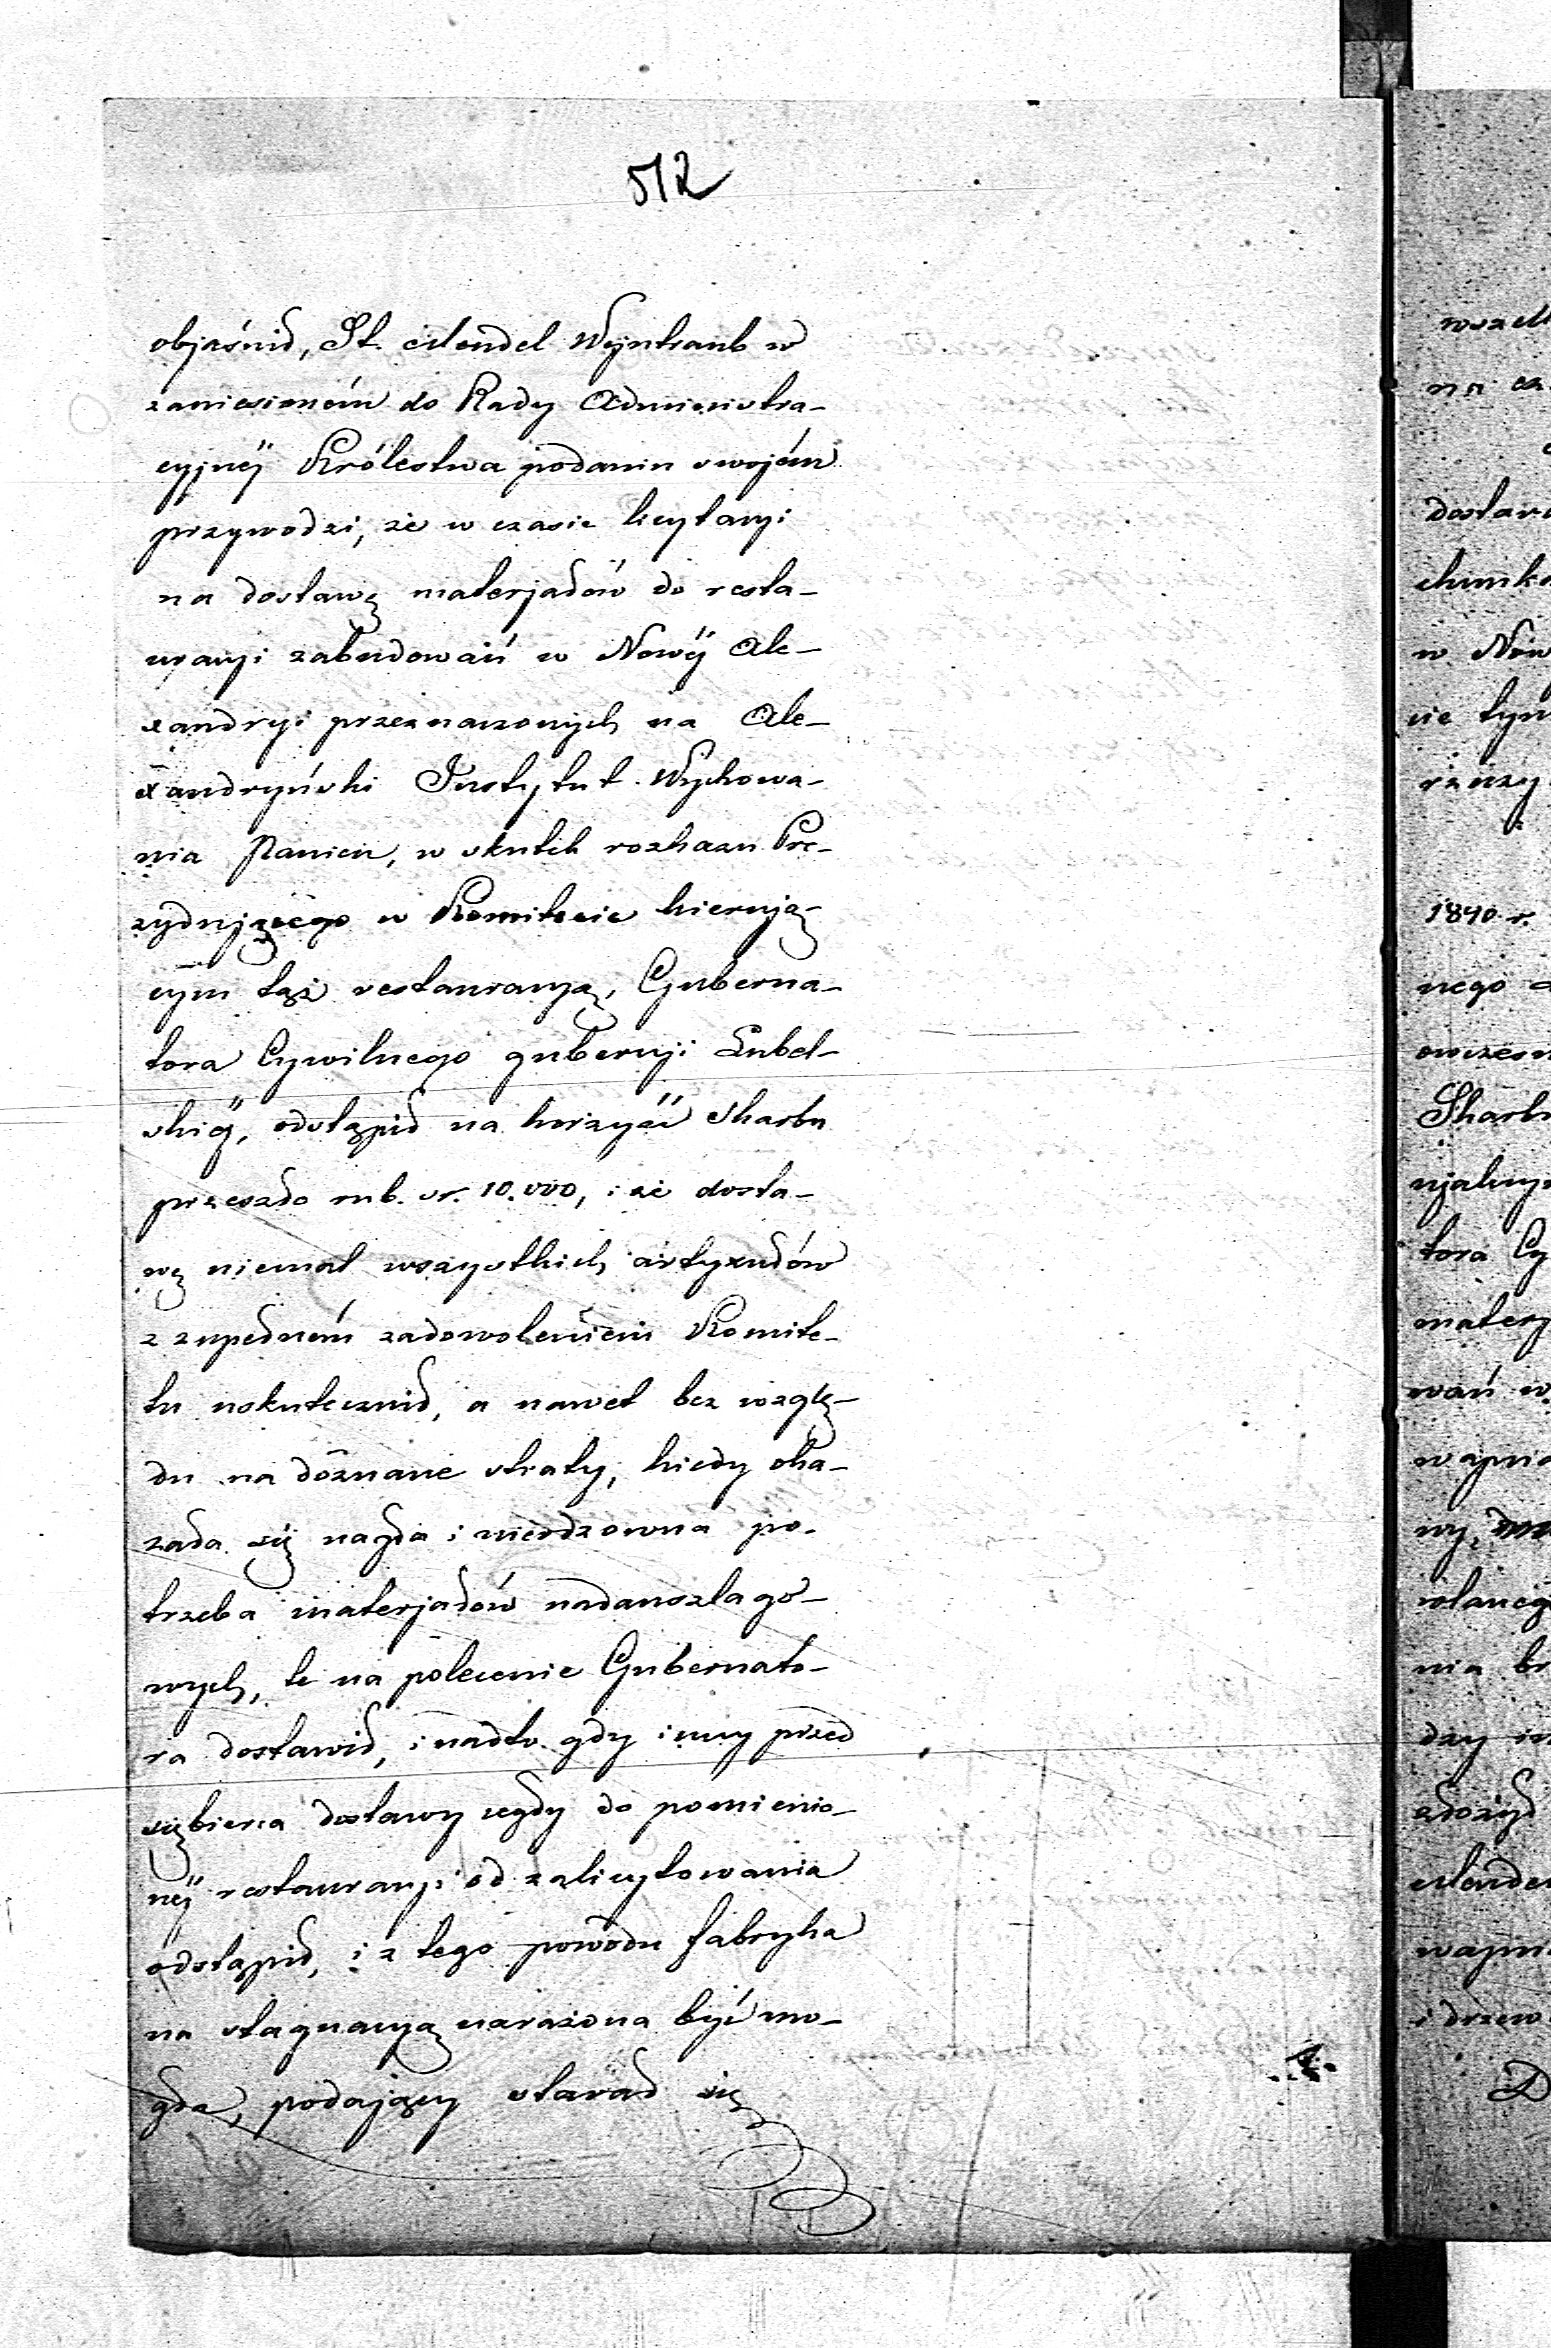 512
objaśnił, St. Mendel Wejntraub w
zaniesioném do Rady Administra-
cyjnéj Królestwa podaniu swojém
przywodzi, że w czasie licytacyi
na dostawę materjałów do resta-
uracyi zabudowań w Nowéj Ale-
xandryi przeznaczonych na Ale-
xandryński Instytut Wychowa-
nia Panien, w skutek rozkazu Pre-
zydującego w Komitecie kierują-
cym tąż restauracyą, Guberna-
tora Cywilnego gubernji Lubel-
skiéj, odstąpił na korzyść Skarbu
przeszło rub. sr. 10.000, i że dosta-
wę niemal wszystkich artykułów
z zupełném zadowoleniem Komite-
tu uskutecznił, a nawet bez wzglę-
du na doznane straty, kiedy oka-
zała się nagła i niewdzowna po-
trzeba materjałów nadanszlago-
wych, te na polecenie Gubernato-
ra dostawił, i nadto gdy inny przed
siębierca dostawy cegły do pomienio-
néj restauracyi od zalicytowania
odstąpił, i z tego powodu fabryka
na stagnacyą narażona być mo-
gła, podający starał się